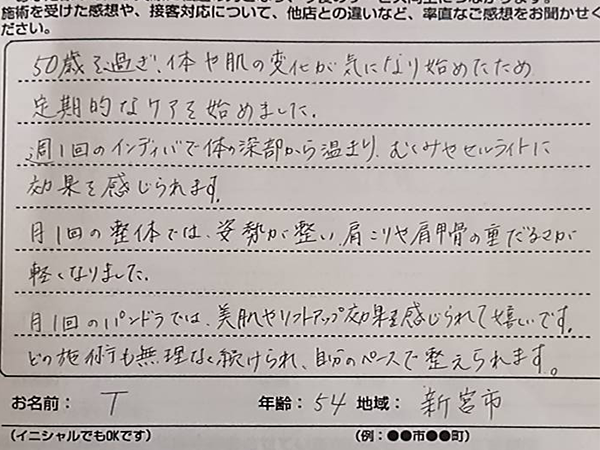 施術を受けた感想や、接客対応について、他店との違いなど、率直なご感想をお聞かせく
ださい。
50歳を過ぎ、体や肌の変化が気になり始めたため
定期的なケアを始めました。
週1回のインディバで体の深部から温まり、むくみやセルライトに
効果を感じられます。
月1回の整体では、姿勢が整い、肩こりや肩甲骨の重だるさが
軽くなりました。
月1回のパンドラでは、美肌やリフトアップ効果を感じられて嬉しいです。
どの施術も無理なく続けられ、自分のペースで整えられます。
お名前： T 年齢：54 地域： 新宮市
（イニシャルでもOKです） （例：●●市●●町）